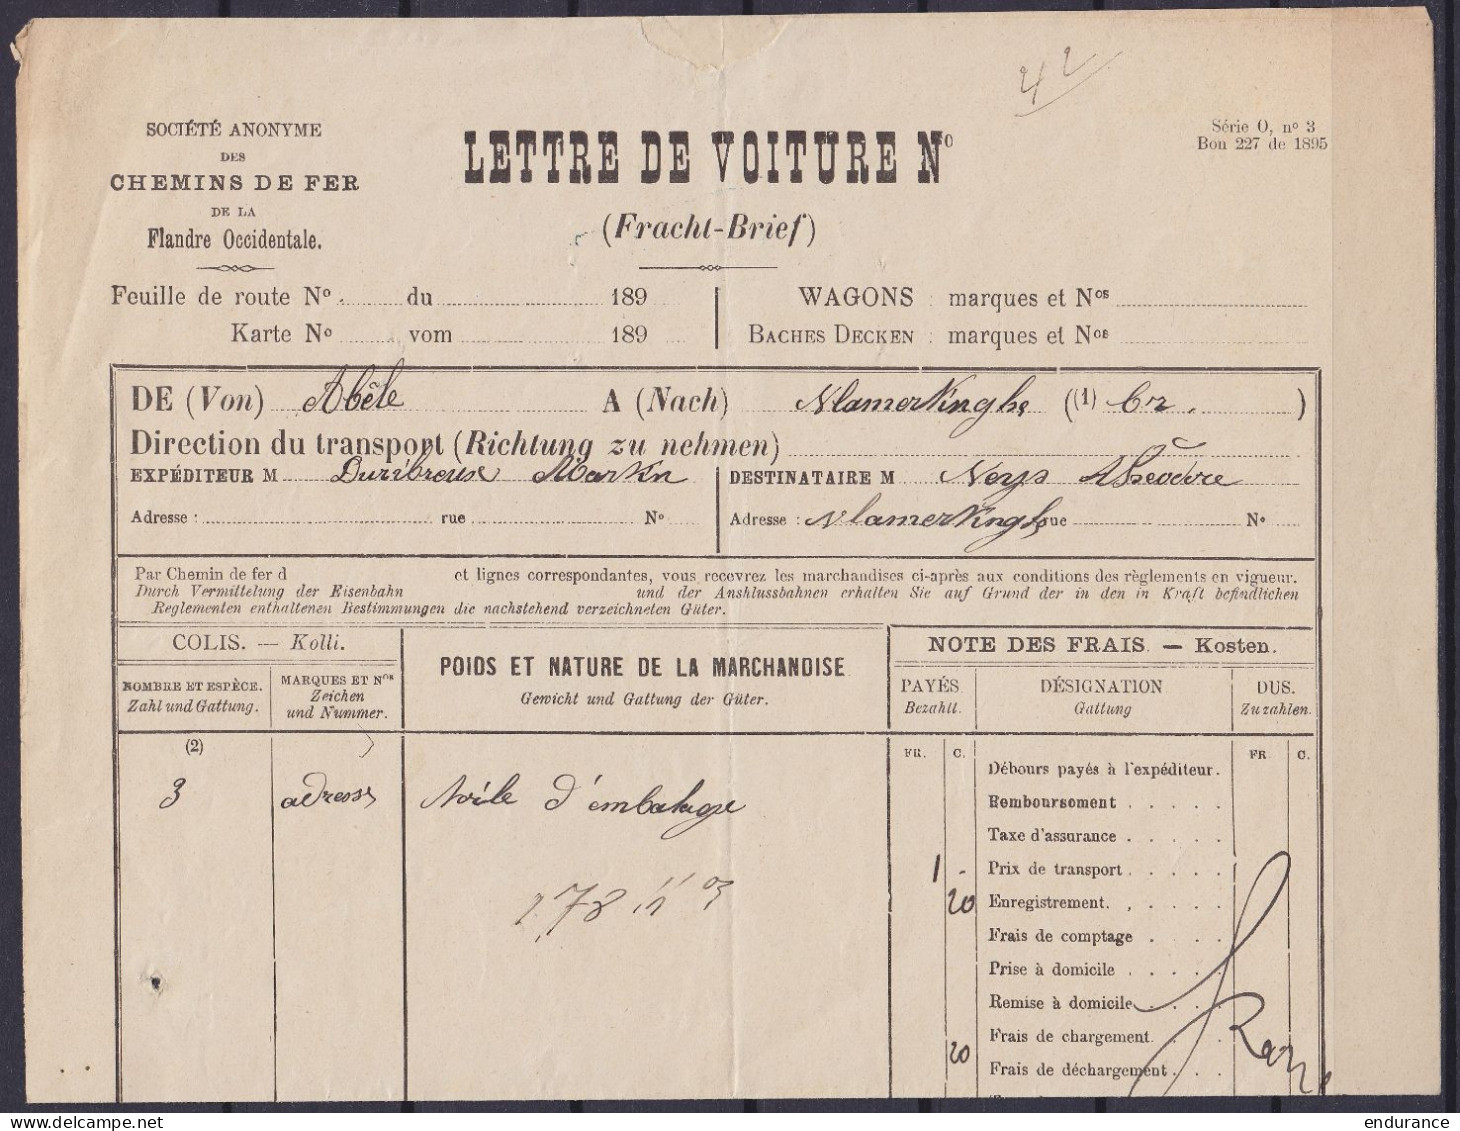 42
SOCIÉTÉ ANONYME
DES
CHEMINS DE FER
DE LA
Flandre Occidentale.
LETTRE DE VOITURE Nº
(Fracht-Brief)
Série O, nº 3
Bon 227 de 1895
Feuille de route Nº du 189
Karte Nº vom 189
WAGONS : marques et Nos
BACHES DECKEN : marques et Nos
DE (Von) Abêle A (Nach) Vlamertinghe ((1) Gr. )
Direction du transport (Richtung zu nehmen)
EXPÉDITEUR M
DESTINATAIRE M Neys Théodore
Adresse : rue Nº
Adresse : Vlamertinghe rue Nº
Par Chemin de fer d et lignes correspondantes, vous recevrez les marchandises ci-après aux conditions des règlements en vigueur.
Durch Vermittelung der Eisenbahn und der Anshlussbahnen erhalten Sie auf Grund der in den in Kraft befindlichen
Reglementen enthaltenen Bestimmungen die nachstehend verzeichneten Güter.
COLIS. — Kolli.
NOMBRE ET ESPÈCE.
Zahl und Gattung.
MARQUES ET Nos
Zeichen
und Nummer.
POIDS ET NATURE DE LA MARCHANDISE
Gewicht und Gattung der Güter.
NOTE DES FRAIS. — Kosten.
PAYÉS.
Bezahlt.
DÉSIGNATION
Gattung
DUS.
Zu zahlen.
(2)
3 adresse toile d'emballage
FR. C.
FR. C.
Débours payés à l'expéditeur.
Remboursement . . . .
Taxe d'assurance . . . .
1 - Prix de transport . . . .
20 Enregistrement. . . . .
Frais de comptage . . .
Prise à domicile . . . .
Remise à domicile . . .
Frais de chargement. . .
20 Frais de déchargement . . .
endurance